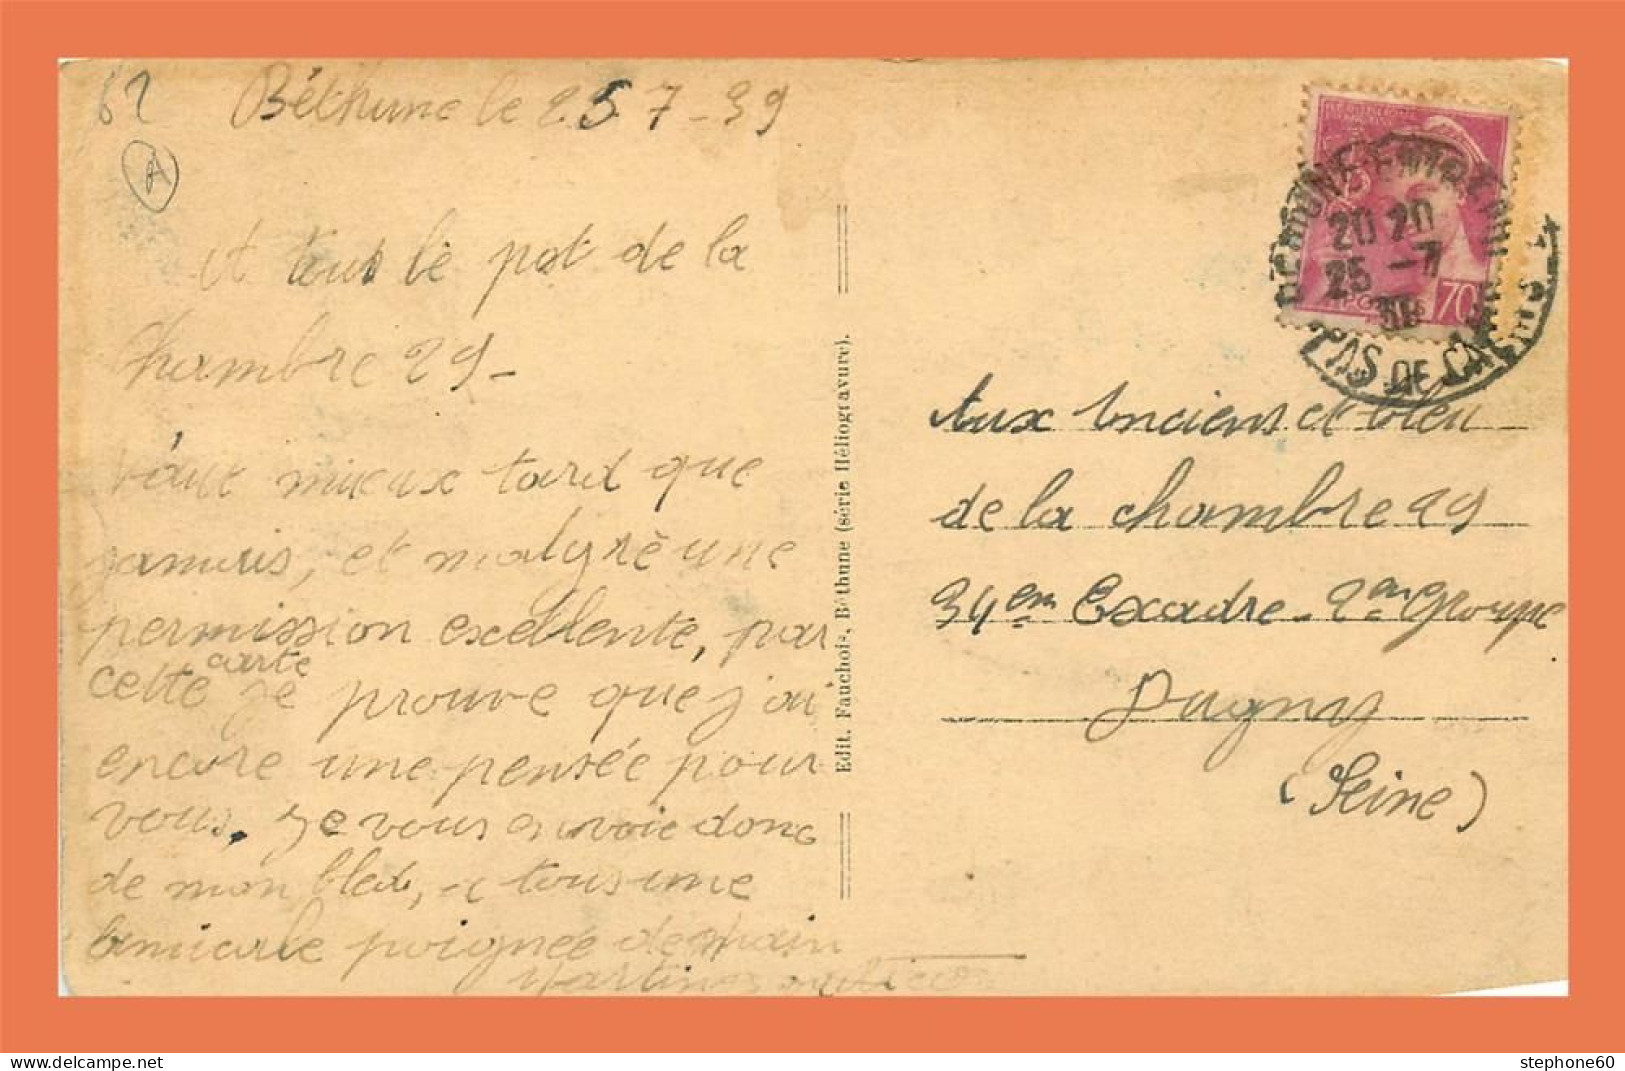 62
A
Béthune le 25 7 - 39
A tous le pot de la
Chambre 29 -
Vaut mieux tard que
jamais, et malgrè une
permission excellente, par
cette carte je prouve que j'ai
encore une pensée pour
vous. Je vous envoie donc
de mon bled, a tous une
amicale poignée de main
Edit. Fauchois, Béthune (série Héliogravure).
BETHUNE ENTREPOT
20 20
25 -7
39
PAS DE CALAIS
70
Aux Anciens et bleu
de la chambre 29
34em Exadre - 2em Groupe
Dugny
(Seine)
stephone60